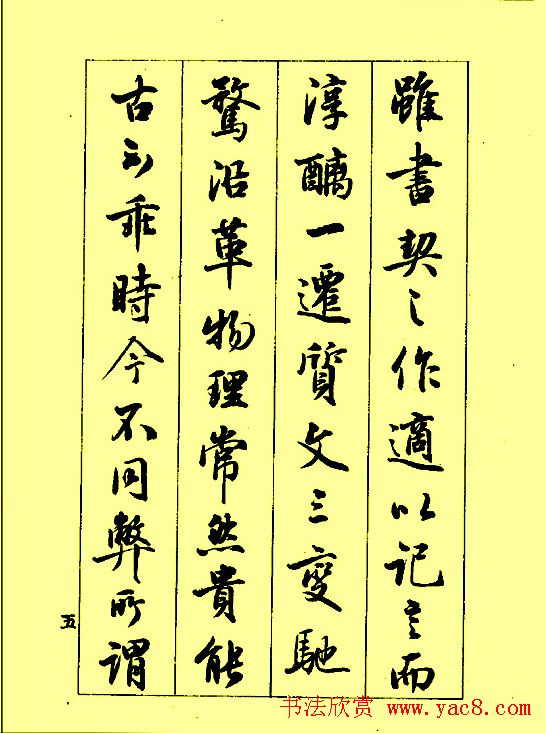 雖書契之作適以記言而
淳醨一遷質文三變馳
騖沿革物理常然貴能
古不乖時今不同弊所謂
五
书法欣赏 www.yac8.com